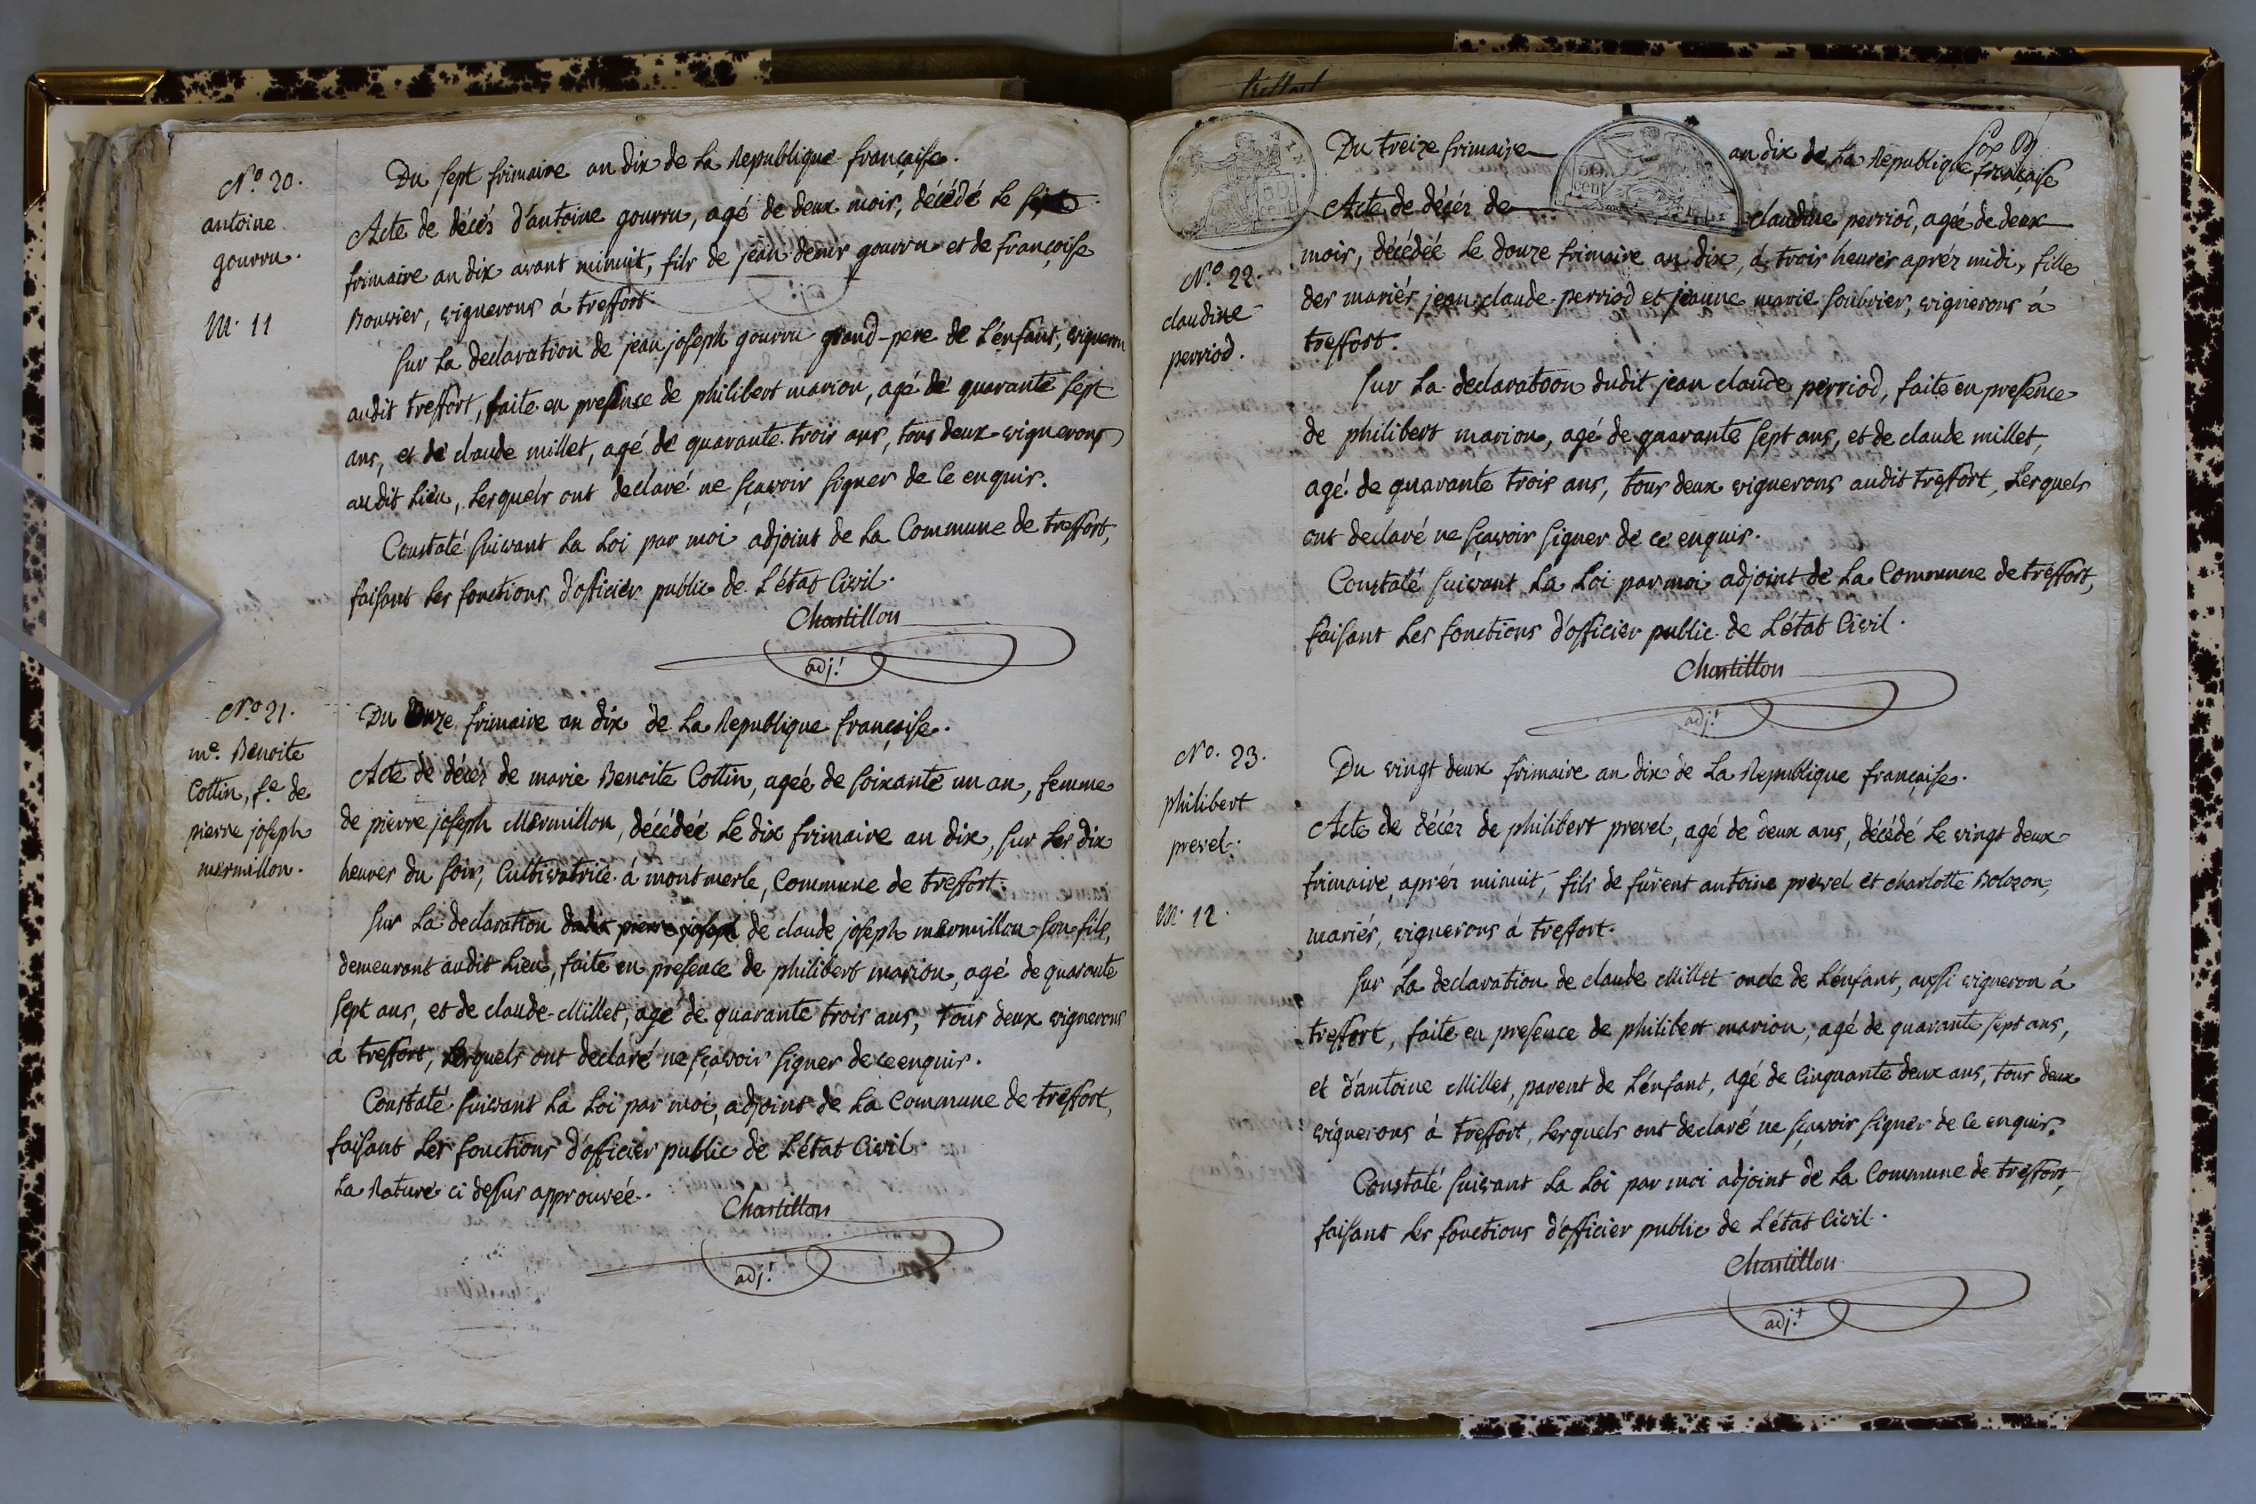 N.o 20.
antoine
gourru.
M. 11
Du sept frimaire an dix de La Republique française.
Acte de décès d'antoine gourru, agé de deux mois, décédé Le sept
frimaire an dix avant minuit, fils de jean denis gourru et de françoise
Bouvier, vignerons á treffort.
Sur La declaration de jean joseph gourru grand-pere de L'enfant, vigneron
audit treffort, faite en presence de philibert marion, agé de quarante sept
ans, et de claude millet, agé de quarante trois ans, tous deux vignerons
audit Lieu, Lesquels ont declaré ne sçavoir signer de ce enquis.
Constaté suivant La Loi par moi adjoint de La Commune de treffort,
faisant Les fonctions d'officier public de L'état Civil.
Chastillon
adj.t
N.o 21.
m.e Benoite
Cottin, f.e de
pierre joseph
mermillon.
Du Onze frimaire an dix de La Republique française.
Acte de décès de marie Benoite Cottin, agée de soixante un an, femme
de pierre joseph Mermillon, décédée Le dix frimaire an dix, sur Les dix
heures du soir, Cultivatrice á montmerle, Commune de treffort.
Sur La declaration dudit pierre joseph de claude joseph mermillon son fils,
demeurant audit Lieu, faite en presence de philibert marion, agé de quarante
sept ans, et de claude Millet, agé de quarante trois ans, tous deux vignerons
á treffort, Lesquels ont declaré ne sçavoir signer de ce enquis.
Constaté suivant La Loi par moi, adjoint de La Commune de treffort,
faisant Les fonctions d'officier public de L'état Civil
La Rature ci dessus approuvée.
Chastillon
adj.t
treffort
50
cent
N.o 22.
claudine
perriod.
Du treize frimaire an dix de La Republique française
Acte de décès de claudine perriod, agée de deux
mois, décédée Le douze frimaire an dix, á trois heures aprés midi, fille
des mariés jean claude perriod et jeanne marie soubrier, vignerons á
treffort.
Sur La declaratoon dudit jean claude perriod, faite en presence
de philibert marion, agé de quarante sept ans, et de claude millet,
agé de quarante trois ans, tous deux vignerons audit treffort, Lesquels
ont declaré ne sçavoir signer de ce enquis.
Constaté suivant La Loi par moi adjoint de La Commune de treffort,
faisant Les fonctions d'officier public de L'état Civil.
Chastillon
adj.t
N.o 23.
philibert
prevel.
M. 12.
Du vingt deux frimaire an dix de La Republique française.
Acte de décès de philibert prevel, agé de deux ans, décédé Le vingt deux
frimaire aprés minuit, fils de fûrent antoine prevel et charlotte Bolozon,
mariés, vignerons á treffort.
Sur La declaration de claude Millet oncle de L'enfant, aussi vigneron á
treffort, faite en presence de philibert marion, agé de quarante sept ans,
et d'antoine Millet, parent de L'enfant, agé de Cinquante deux ans, tous deux
vignerons à treffort, Lesquels ont declaré ne sçavoir signer de ce enquis.
Constaté suivant La Loi par moi adjoint de La Commune de treffort,
faisant Les fonctions d'officier public de L'état Civil.
Chastillon
adj.t